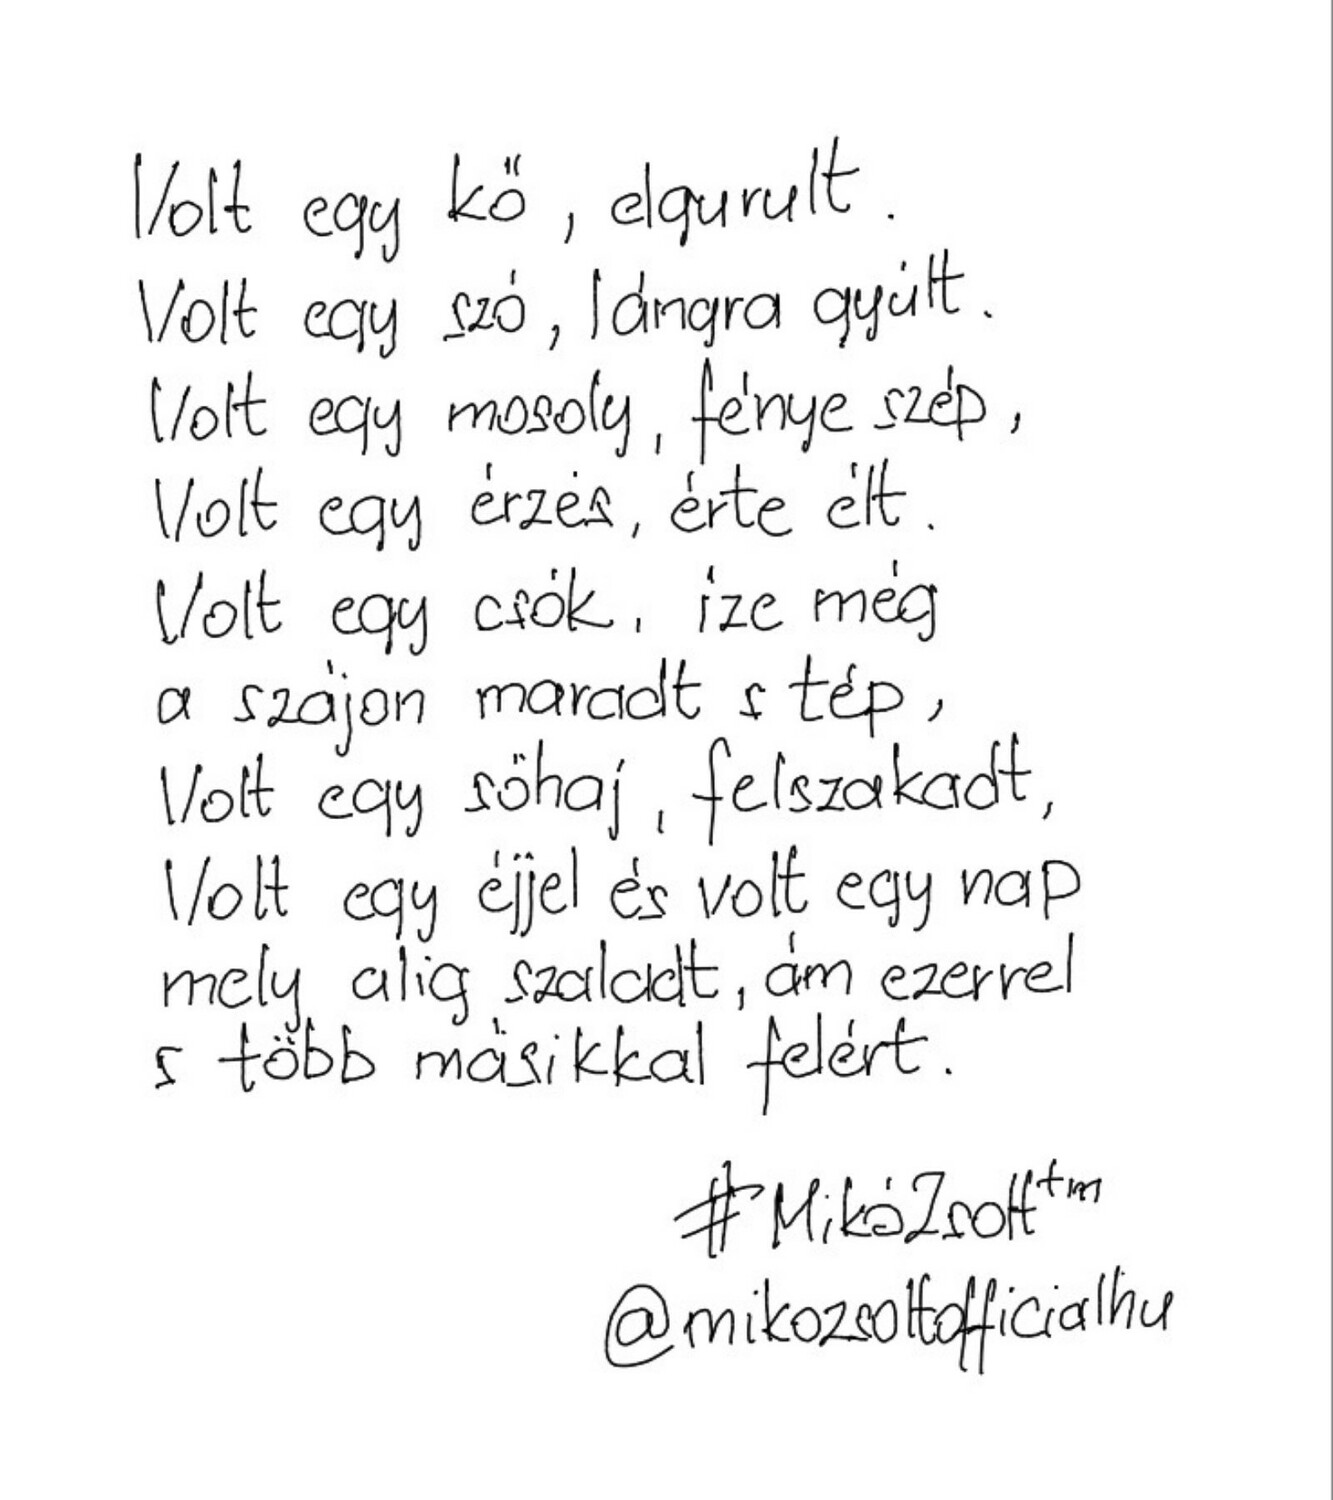 Volt egy kő, elgurult.
Volt egy szó, lángra gyúlt.
Volt egy mosoly, fénye szép,
Volt egy érzés, érte élt.
Volt egy csók, íze még
a szájon maradt s tép,
Volt egy sóhaj, felszakadt,
Volt egy éjjel és volt egy nap
mely alig szaladt, ám ezerrel
s több másikkal felért.
#MikóZsolt™
@mikozsoltofficialhu